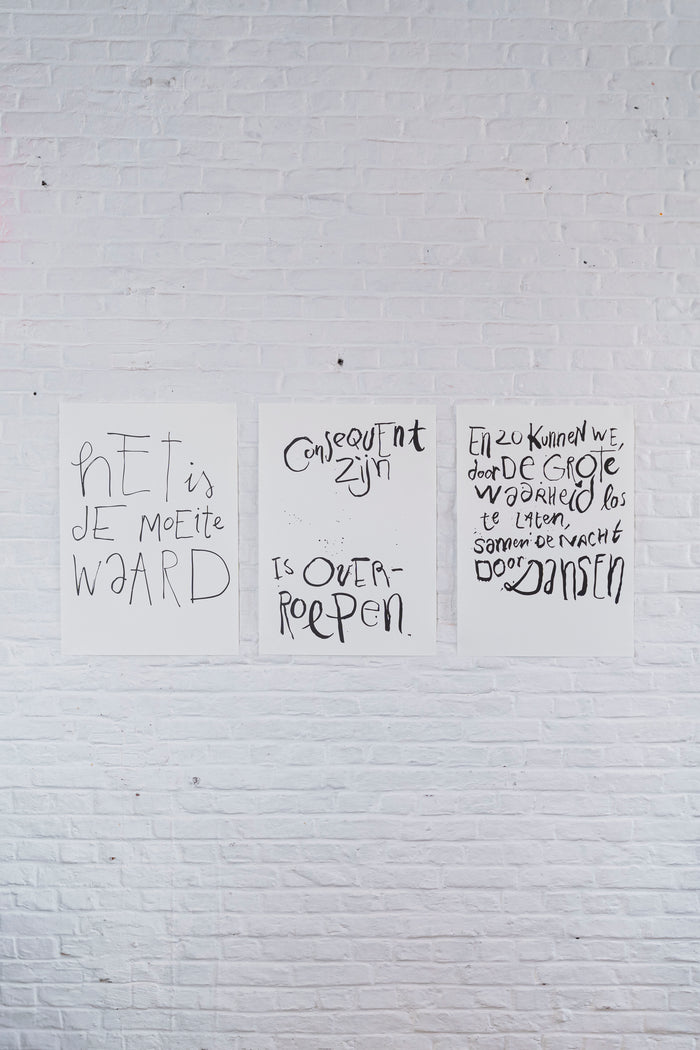 hET is
JE MOEitE
WaARD
ConSEQUEnt
Zijn
IS OVER-
ROEPEN.
En ZO KUNNEN WE,
door DE GROTE
WaaRHEid los
te LATEN,
samen DE NACHT
DOOR DansEN